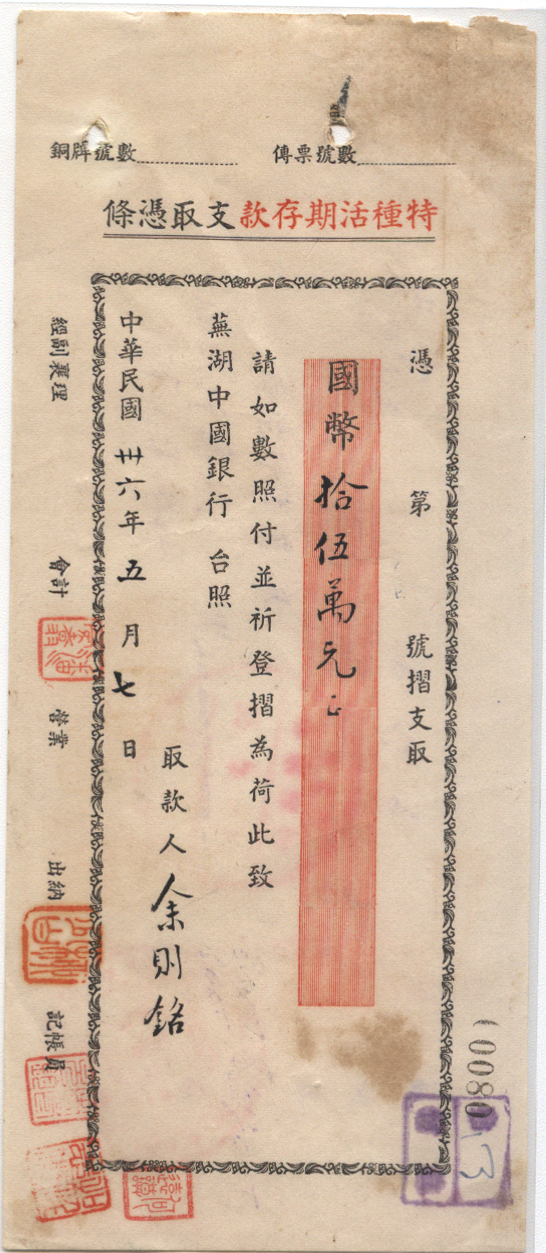 傳票號數
銅牌號數
特種活期存款支取憑條
憑 第 號摺支取
國幣拾伍萬元正
請如數照付並祈登摺為荷此致
蕪湖中國銀行 台照
取款人 余則銘
中華民國卅六年五月七日
經副襄理 會計 營業 出納 記帳員
10080
13